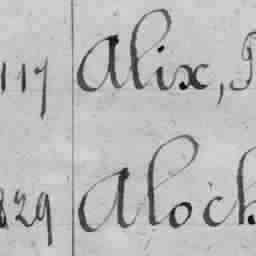 117 Alix,
829 Aloch